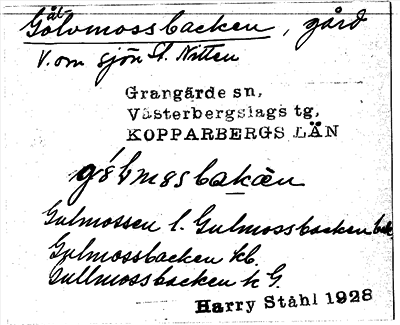 Golvmossbacken, gård
V. om sjön St. Nitten
Grangärde sn,
Västerbergslags tg,
KOPPARBERGS LÄN
Gulmossen l. Gulmossbacken
Gulmossbacken kb.
Gullmossbacken k G.
Harry Ståhl 1928